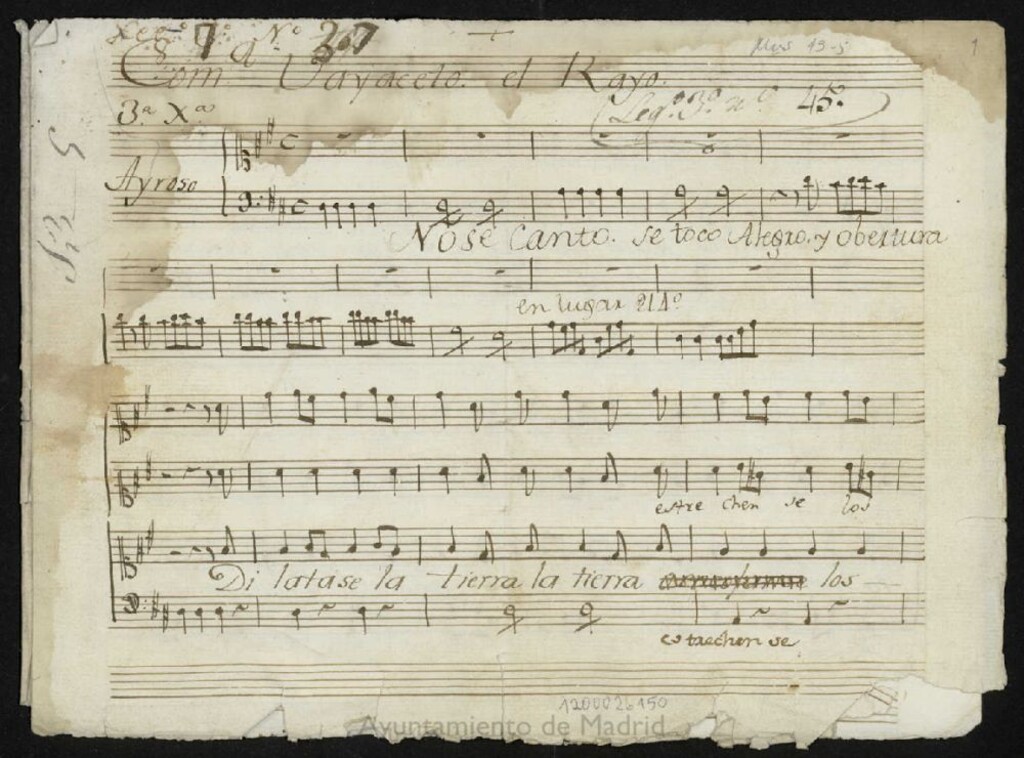 Leg.º 7.º N.º 27
Mus 19-5
1
Com.ª Vayaceto. el Rayo.
3.ª X.ª
(Leg.º 3.º n.º 45.
Ayroso
No se Canto. se toco Alegro. y obertura
en lugar
estre chen se los
Di latase la tierra la tierra los
estrechen se
1200026150
Ayuntamiento de Madrid